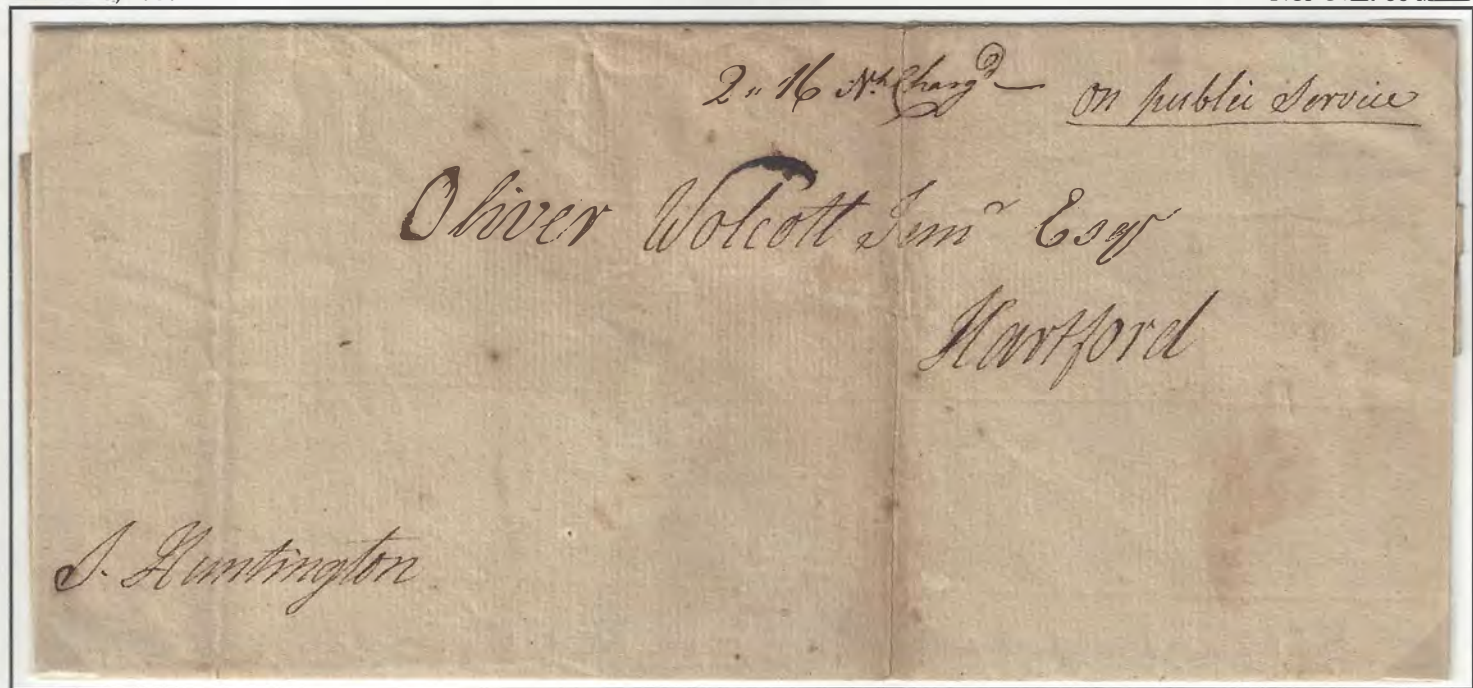 2 " 16 Nt Chargd — on public Service
Oliver Wolcott Junr Esqr
Hartford
S. Huntington